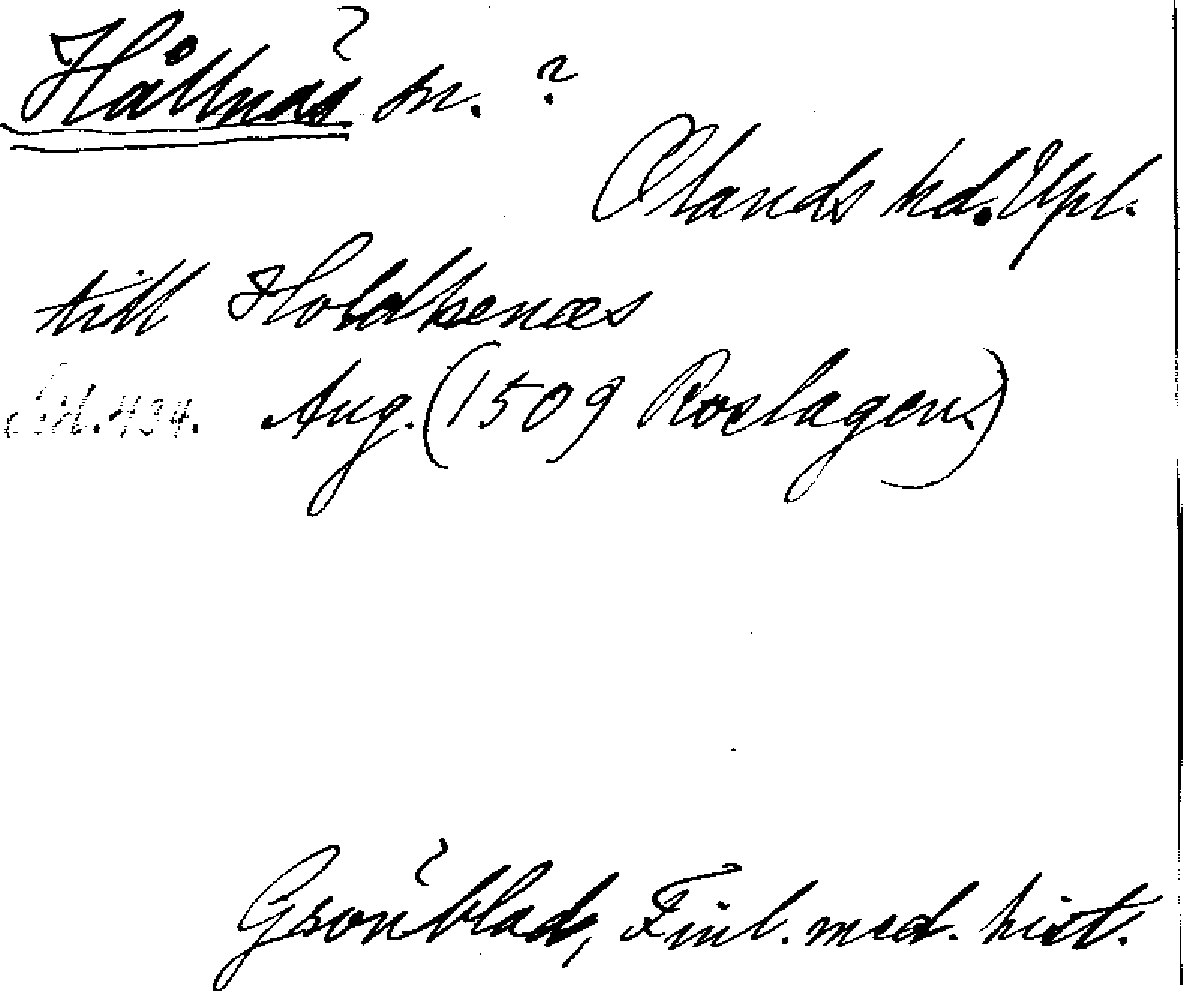 Hållnäs sn. ?
Olands hd. Upl.
till Holdhenæs
Aug. (1509 Roslagen)
Grönblad, Finl. med. hist.